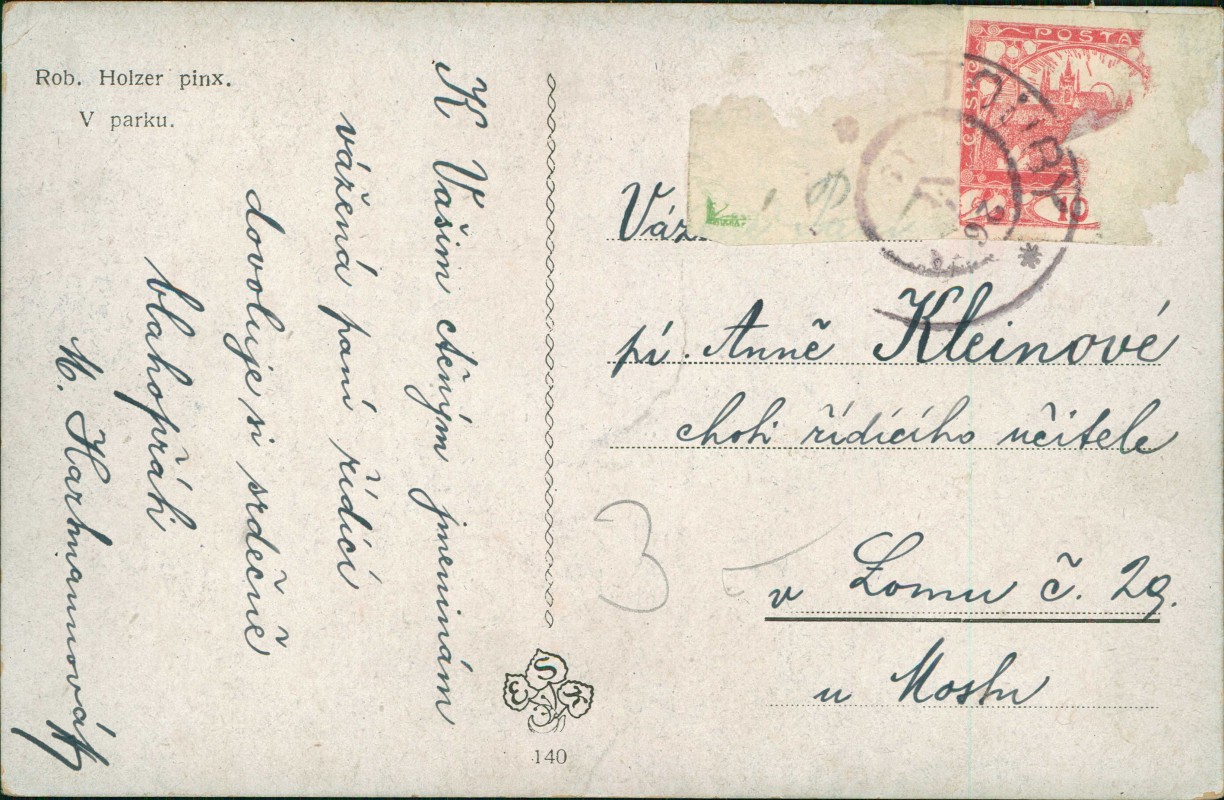 Rob. Holzer pinx.
V parku.
K Vašim ctěným jmeninám
vážená paní řídící
dovoluje si srdečně
blahopřáti
M. Hartmannová
140
POSTA
10
Vážená Paní
pí. Anně Kleinové
choti řídícího učitele
v Lomu č. 29.
u Mostu
3